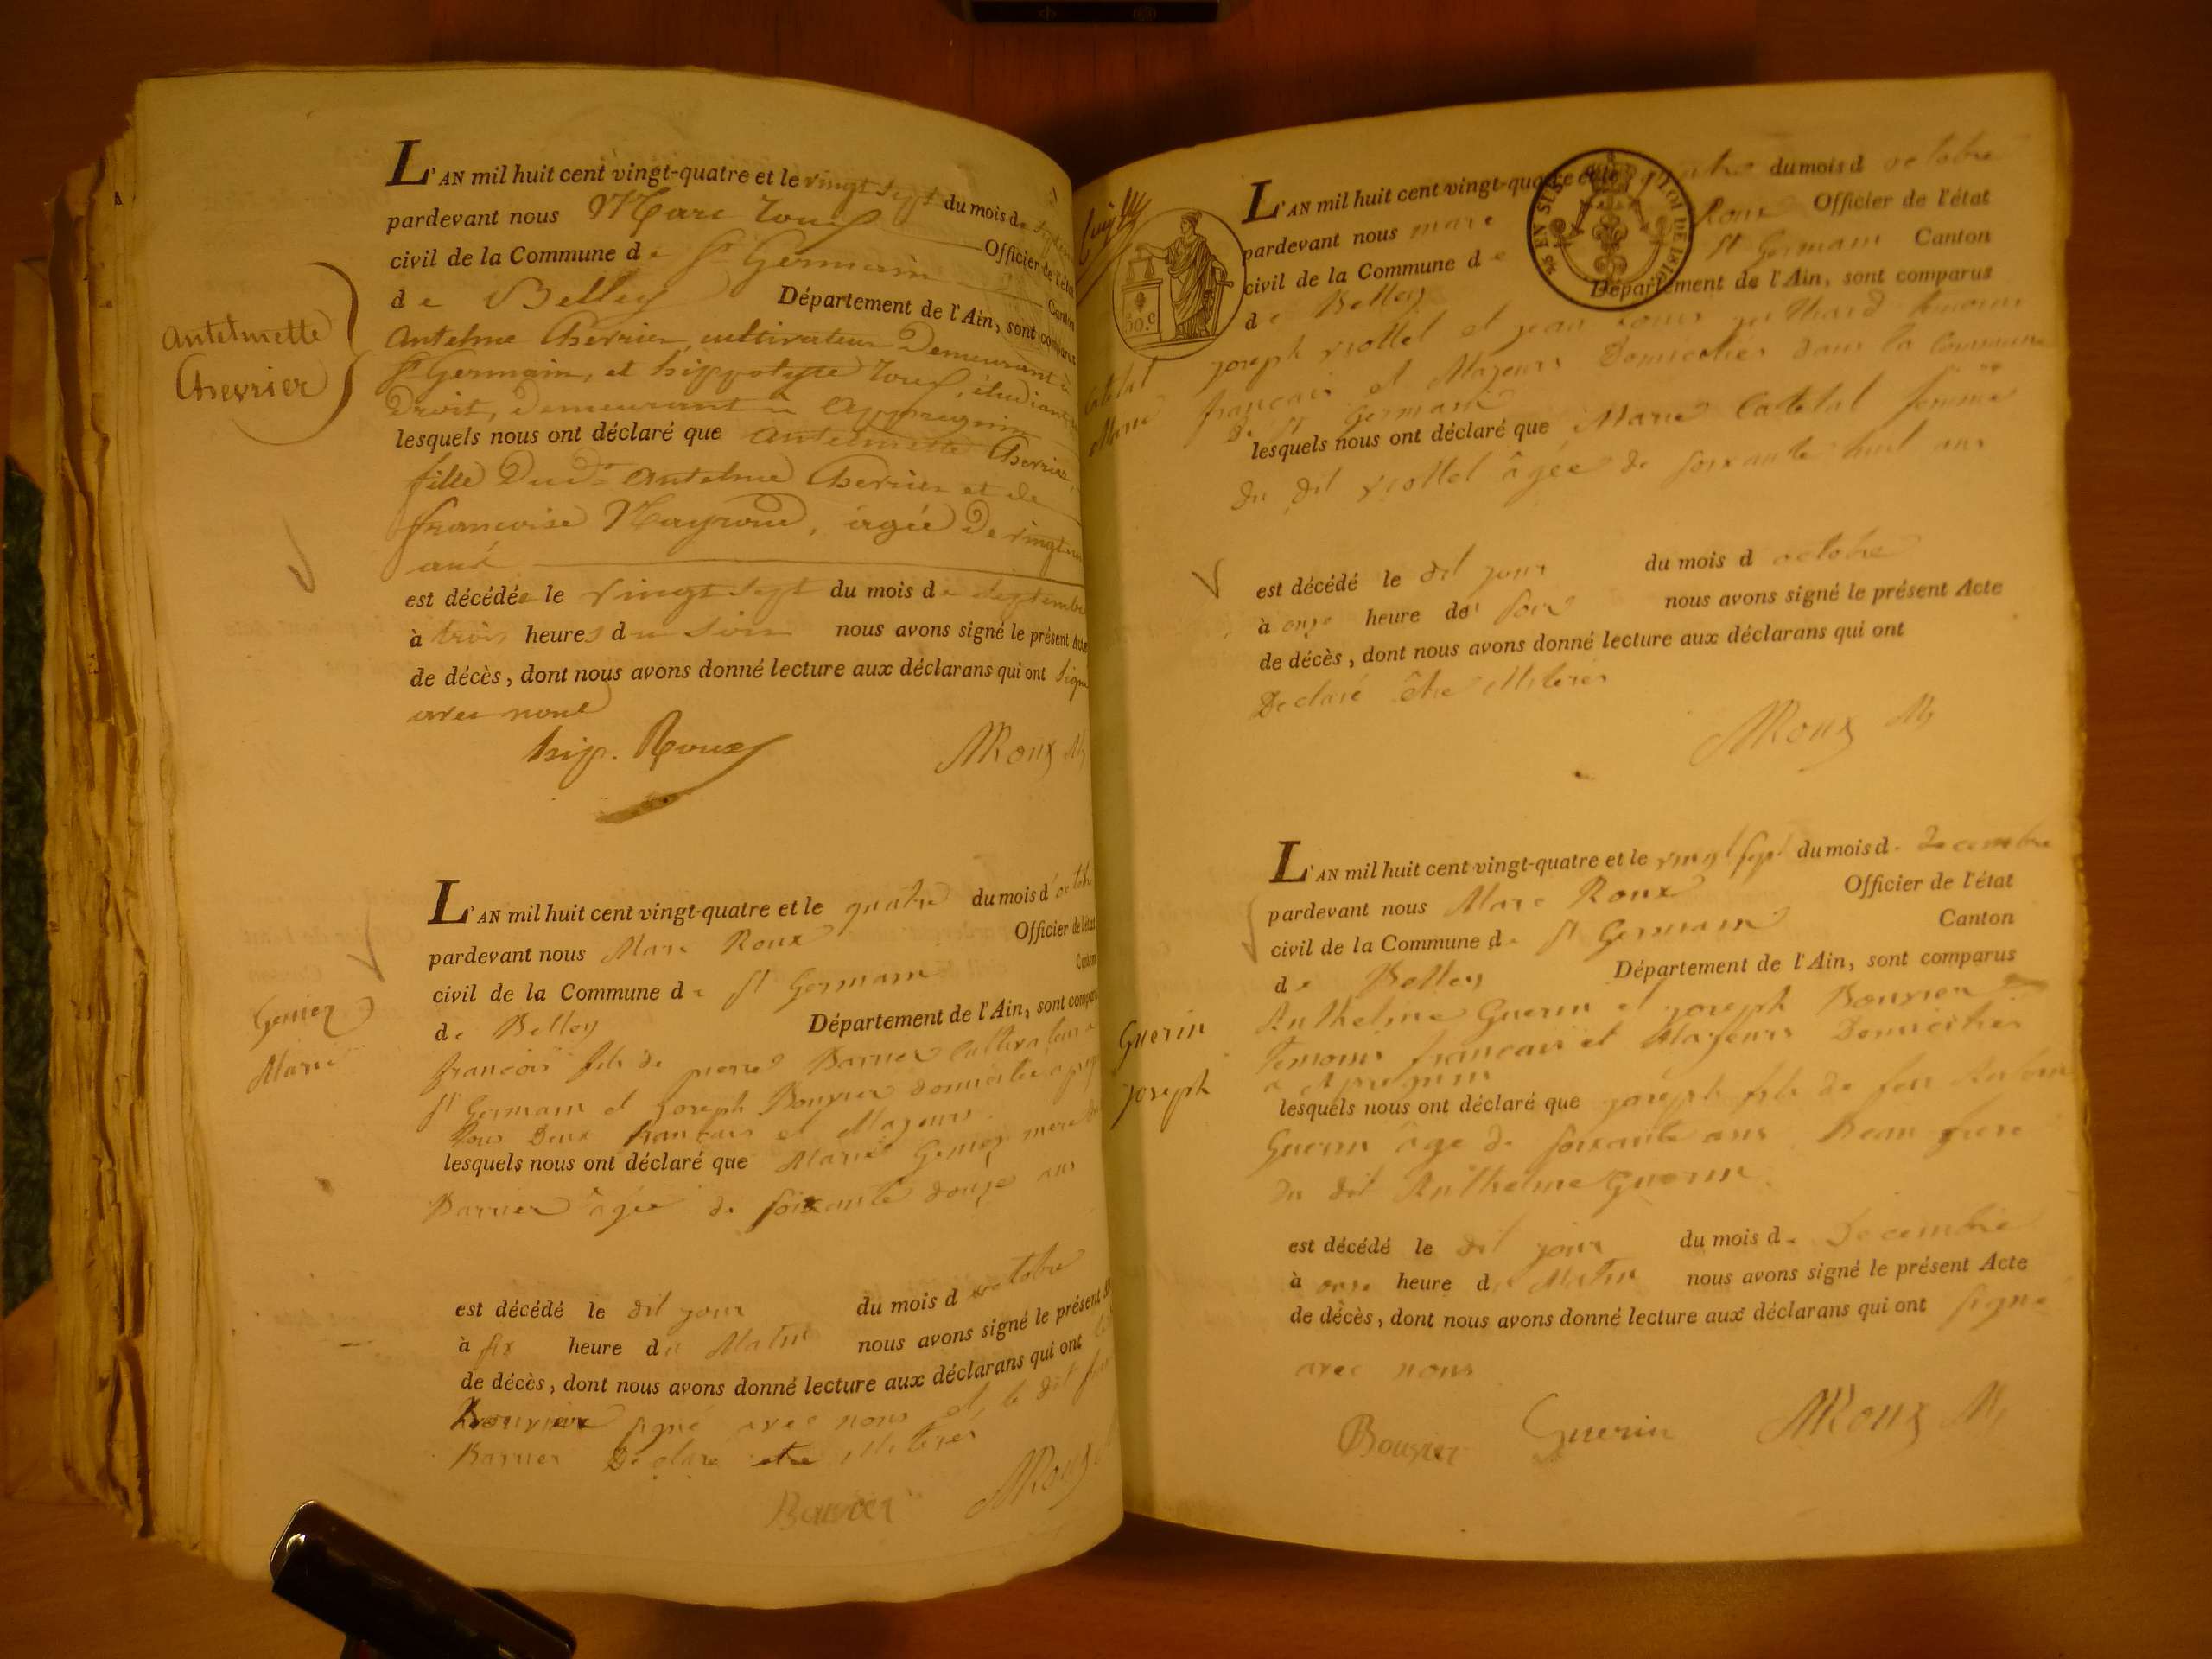 Antelmette
Chevrier
L'AN mil huit cent vingt-quatre et le vingt sept du mois de
pardevant nous Marc Roux Officier de l'état
civil de la Commune de St Germain Canton
de Belley Département de l'Ain, sont comparus
Antelme Chevrier, cultivateur Demeurant à
St Germain, et hippolyte Roux, étudiant
Droit, Demeurant à Appregnin
lesquels nous ont déclaré que Antelmette Chevrier,
fille Dud. Antelme Chevrier et de
francoise Mayrond, agée De vingt
ans
est décédée le vingt sept du mois de Septembre
à trois heures du Soir nous avons signé le présent Acte
de décès, dont nous avons donné lecture aux déclarans qui ont Signé
avec nous
hip. Roux MRoux M
Genier
Marie
L'AN mil huit cent vingt-quatre et le quatre du mois d'octobre
pardevant nous Marc Roux Officier de l'état
civil de la Commune de St Germain Canton
de Belley Département de l'Ain, sont comparus
francois fils de pierre Barnier Cultivateur a
St Germain et joseph Bouvier domicilie a
tous Deux francais et Majeurs
lesquels nous ont déclaré que Marie Genier mere
Barnier âgée de soixante douze ans
est décédé le dit jour du mois d octobre
à six heure du Matin nous avons signé le présent
de décès, dont nous avons donné lecture aux déclarans qui ont
Bouvier signé avec nous et le dit
Barnier Déclare etre illiteré
Bouvier MRoux
30.c
EN SUS
LOI DE 1816
Catelat
Marie
L'AN mil huit cent vingt-quatre et le quatre du mois d octobre
pardevant nous marc Roux Officier de l'état
civil de la Commune de St Germain Canton
de Belley Département de l'Ain, sont comparus
joseph viollet et jean temoins
francais et Majeurs Domiciliés dans la Commune
de St Germain
lesquels nous ont déclaré que Marie Catelat femme
du dit viollet âgée de soixante huit ans
est décédé le dit jour du mois d octobre
à onze heure du soir nous avons signé le présent Acte
de décès, dont nous avons donné lecture aux déclarans qui ont
Declaré être illiterés
MRoux M
Guerin
joseph
L'AN mil huit cent vingt-quatre et le vingt sept du mois de decembre
pardevant nous Marc Roux Officier de l'état
civil de la Commune de St Germain Canton
de Belley Département de l'Ain, sont comparus
Anthelme Guerin et joseph Bouvier
temoins francais et Majeurs Domiciliés
a Appregnin
lesquels nous ont déclaré que joseph fils de feu Antoine
Guerin âge de soixante ans Beau frere
du dit Anthelme Guerin
est décédé le dit jour du mois de Decembre
à onze heure du Matin nous avons signé le présent Acte
de décès, dont nous avons donné lecture aux déclarans qui ont signé
avec nous
Bouvier Guerin MRoux M